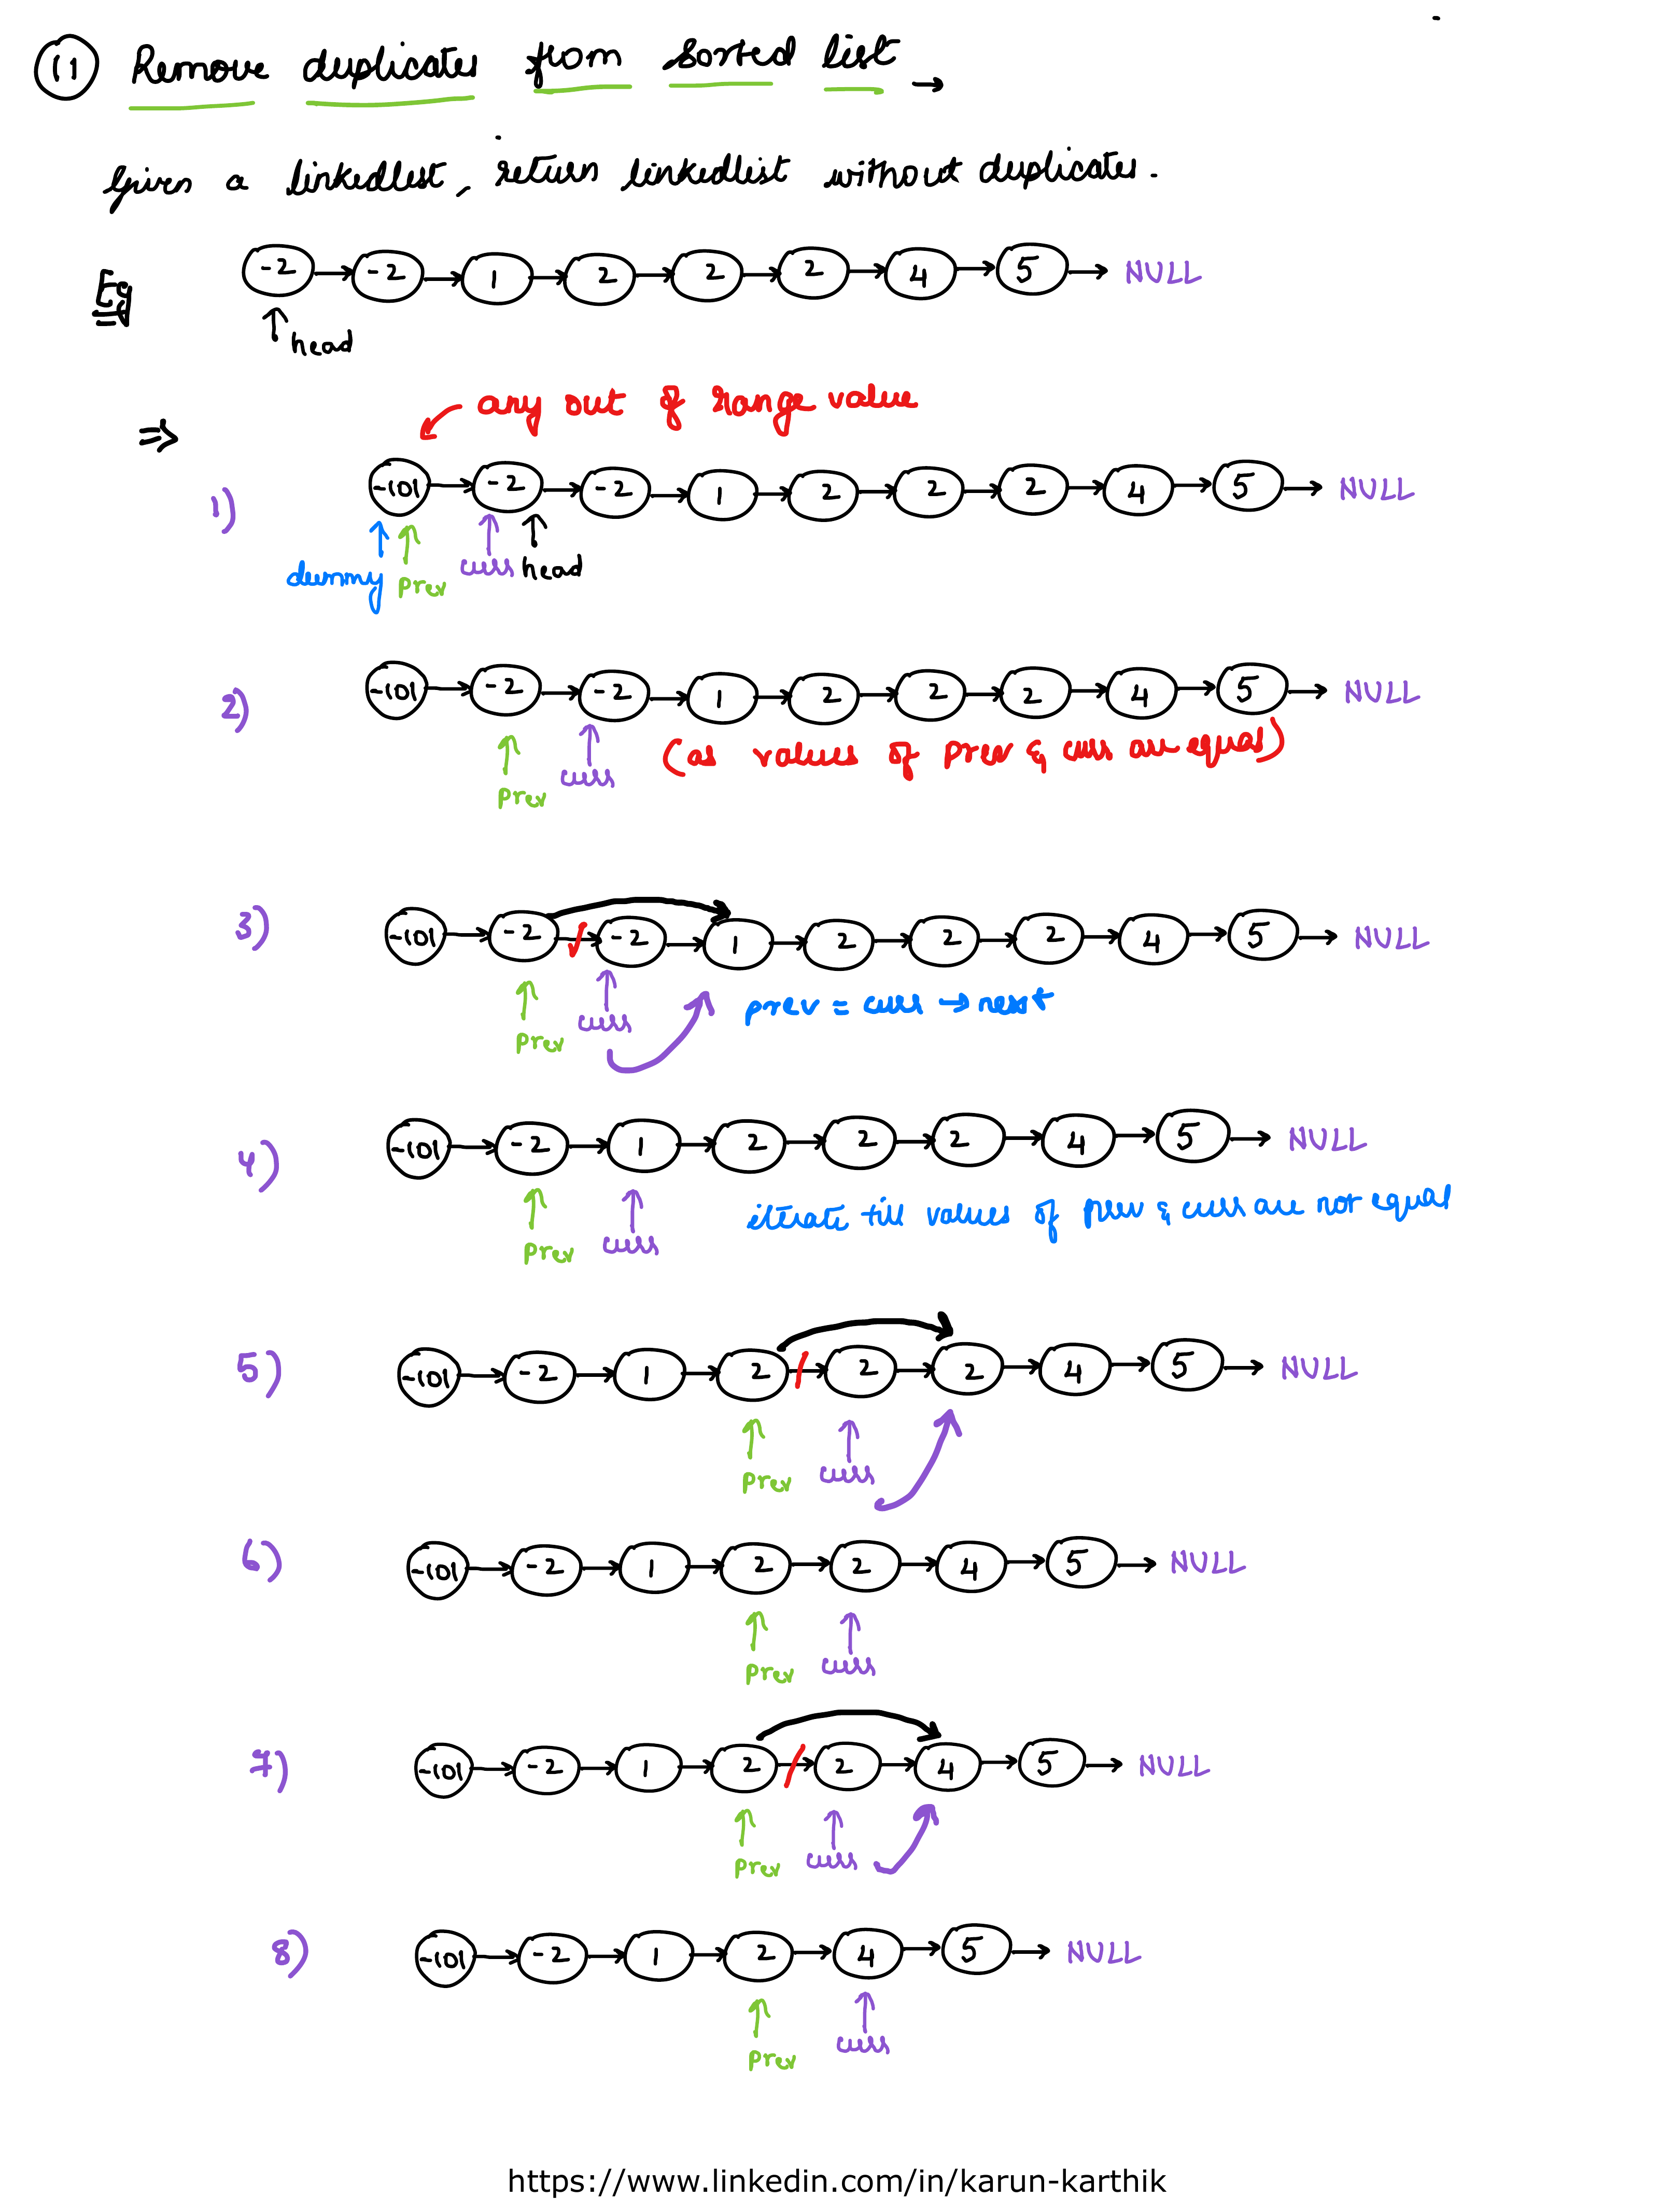 11 Remove duplicates from sorted list →
Given a linkedlist, return linkedlist without duplicates.
Eg -2 → -2 → 1 → 2 → 2 → 2 → 4 → 5 → NULL
head
⇒ any out of range value
1) -101 → -2 → -2 → 1 → 2 → 2 → 2 → 4 → 5 → NULL
dummy prev curr head
2) -101 → -2 → -2 → 1 → 2 → 2 → 2 → 4 → 5 → NULL
prev curr (as values of prev & curr are equal)
3) -101 → -2 → -2 → 1 → 2 → 2 → 2 → 4 → 5 → NULL
prev curr prev = curr → next
4) -101 → -2 → 1 → 2 → 2 → 2 → 4 → 5 → NULL
prev curr iterate till values of prev & curr are not equal
5) -101 → -2 → 1 → 2 → 2 → 2 → 4 → 5 → NULL
prev curr
6) -101 → -2 → 1 → 2 → 2 → 4 → 5 → NULL
prev curr
7) -101 → -2 → 1 → 2 → 2 → 4 → 5 → NULL
prev curr
8) -101 → -2 → 1 → 2 → 4 → 5 → NULL
prev curr
https://www.linkedin.com/in/karun-karthik